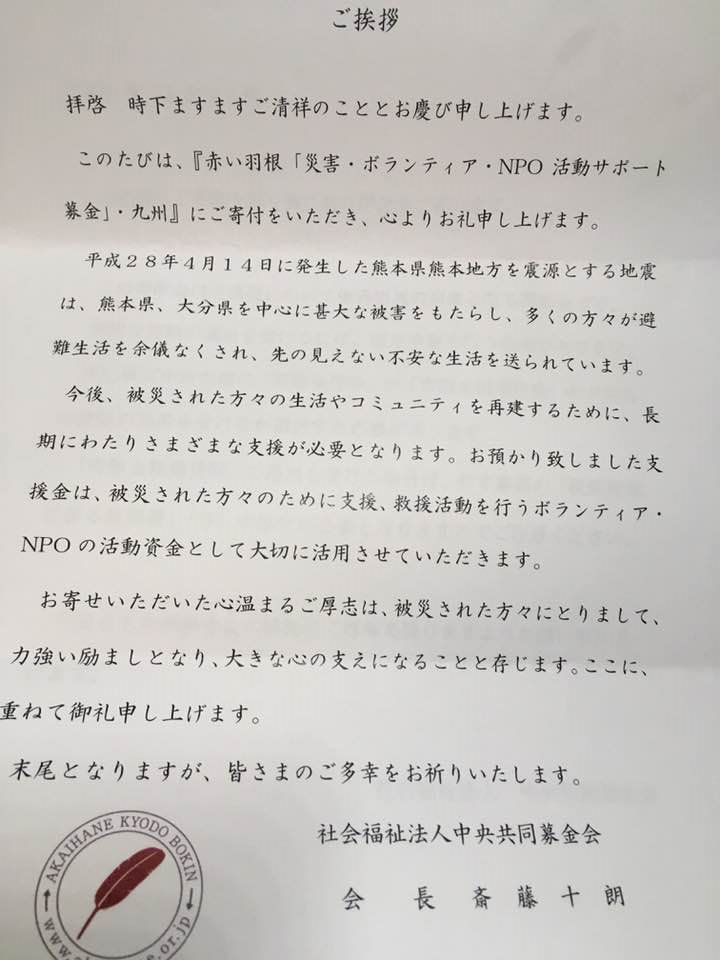 ご挨拶
拝啓　時下ますますご清祥のこととお慶び申し上げます。
このたびは、『赤い羽根「災害・ボランティア・NPO 活動サポート
募金」・九州』にご寄付をいただき、心よりお礼申し上げます。
平成２８年４月１４日に発生した熊本県熊本地方を震源とする地震
は、熊本県、大分県を中心に甚大な被害をもたらし、多くの方々が避
難生活を余儀なくされ、先の見えない不安な生活を送られています。
今後、被災された方々の生活やコミュニティを再建するために、長
期にわたりさまざまな支援が必要となります。お預かり致しました支
援金は、被災された方々のために支援、救援活動を行うボランティア・
NPO の活動資金として大切に活用させていただきます。
お寄せいただいた心温まるご厚志は、被災された方々にとりまして、
力強い励ましとなり、大きな心の支えになることと存じます。ここに、
重ねて御礼申し上げます。
末尾となりますが、皆さまのご多幸をお祈りいたします。
社会福祉法人中央共同募金会
会　長　斎　藤　十　朗
AKAIHANE KYODO BOKIN